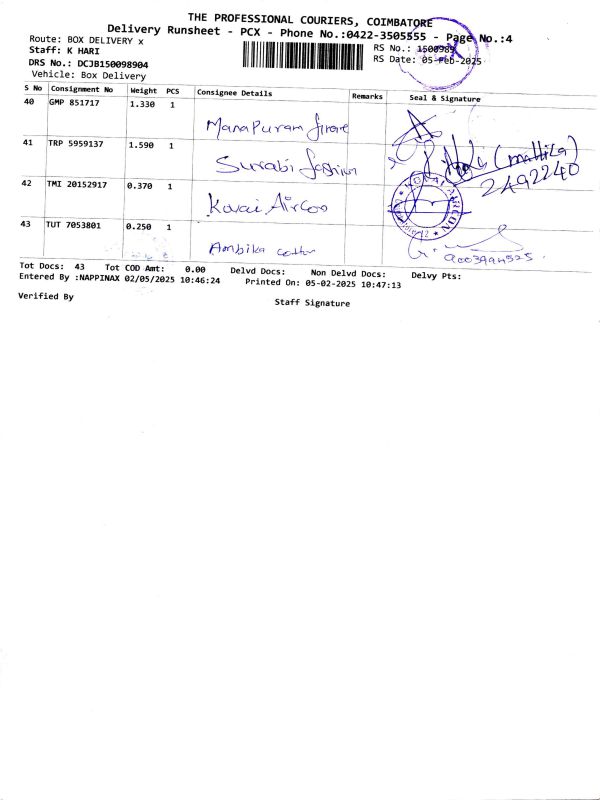 THE PROFESSIONAL COURIERS, COIMBATORE
Delivery Runsheet - PCX - Phone No.:0422-3505555 - Page No.:4
Route: BOX DELIVERY x
RS No.: 1500989
Staff: K HARI
RS Date: 05-Feb-2025
DRS No.: DCJB150098904
Vehicle: Box Delivery
S No Consignment No Weight PCS Consignee Details Remarks Seal & Signature
40 GMP 851717 1.330 1
Manapuram
41 TRP 5959137 1.590 1
Surabi fashion
(mallika)
2492240
42 TMI 20152917 0.370 1
Kovai Aircon
KOVAI AIRCON
43 TUT 7053801 0.250 1
Ambika cotton
Tot Docs: 43 Tot COD Amt: 0.00 Delvd Docs: Non Delvd Docs: Delvy Pts:
Entered By :NAPPINAX 02/05/2025 10:46:24 Printed On: 05-02-2025 10:47:13
Verified By
Staff Signature